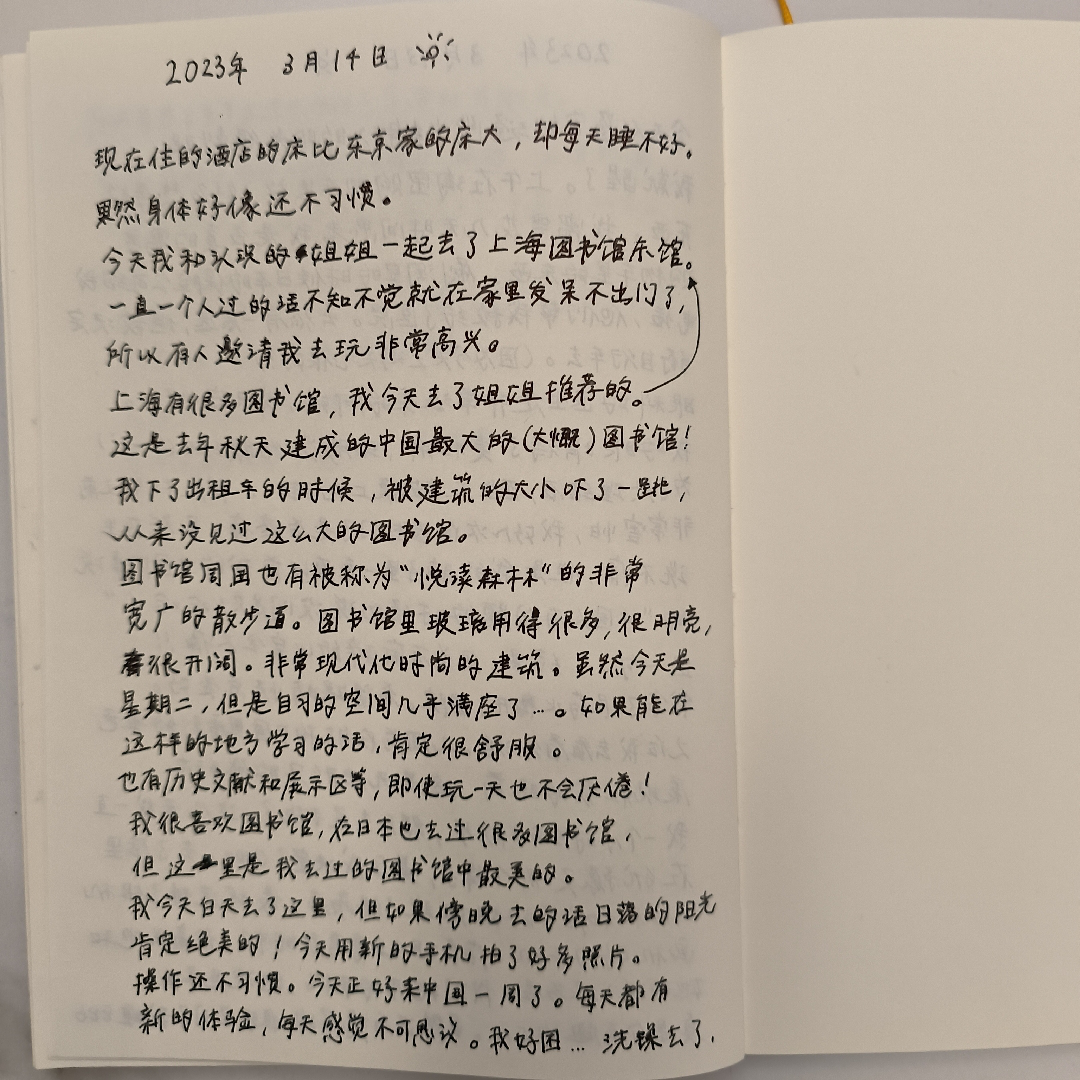 2023年 3月14日
现在住的酒店的床比东京家的床大，却每天睡不好。
果然身体好像还不习惯。
今天我和认识的姐姐一起去了上海图书馆东馆。
一直一个人过的话不知不觉就在家里发呆不出门了，
所以有人邀请我去玩非常高兴。
上海有很多图书馆，我今天去了姐姐推荐的。
这是去年秋天建成的中国最大的(大概)图书馆！
我下了出租车的时候，被建筑的大小吓了一跳，
从来没见过这么大的图书馆。
图书馆周围也有被称为“悦读森林”的非常
宽广的散步道。图书馆里玻璃用得很多，很明亮，
很开阔。非常现代化时尚的建筑。虽然今天是
星期二，但是自习的空间几乎满座了…。如果能在
这样的地方学习的话，肯定很舒服。
也有历史文献和展示区等，即使玩一天也不会厌倦！
我很喜欢图书馆，在日本也去过很多图书馆，
但这里是我去过的图书馆中最美的。
我今天白天去了这里，但如果傍晚去的话日落的阳光
肯定绝美的！今天用新的手机拍了好多照片。
操作还不习惯。今天正好来中国一周了。每天都有
新的体验，每天感觉不可思议。我好困…洗澡去了.